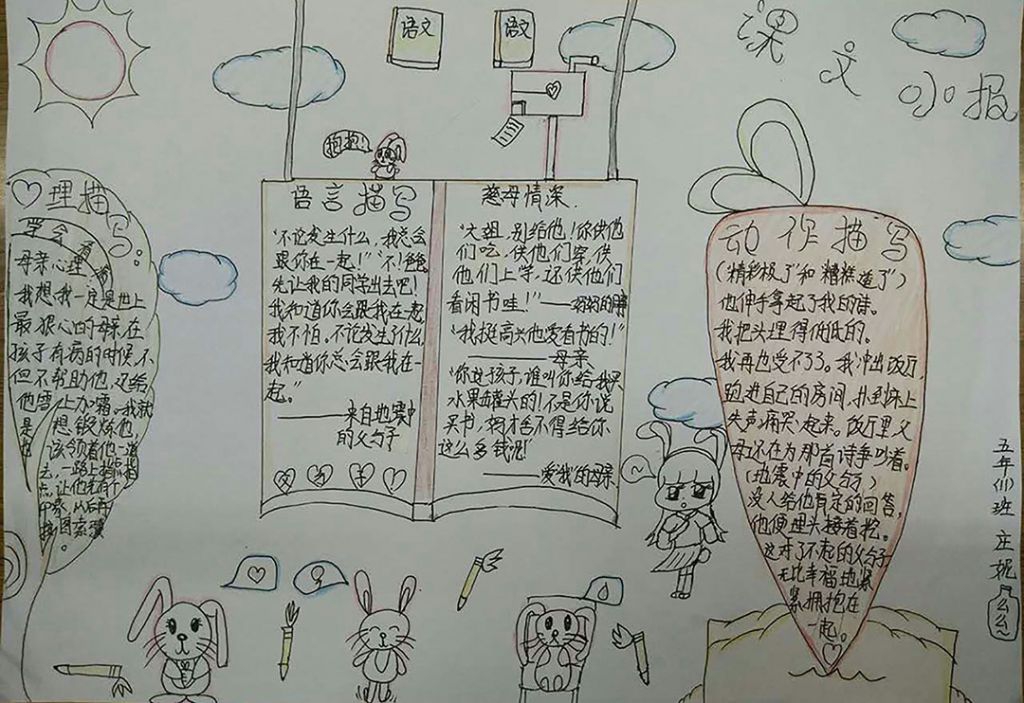 课文小报
语文
语文
抱抱!
心理描写:
学会看病
母亲心理
我想,我一定是世上
最狠心的母亲,在
孩子有病的时候,不
但不帮助他,还给
他雪上加霜。我就
是想锻炼他,
该领着他一道
去,一路上指指点
点,让他先有个
印象,以后再
按图索骥。
语言描写
“不论发生什么,我总会
跟你在一起!”“不!爸爸,
先让我的同学出去吧!
我知道你会跟我在一起,
我不怕。不论发生了什么,
我知道你总会跟我在一
起。”
——来自地震中
的父与子
父母亲
慈母情深.
“大姐,别给他!你供他
们吃,供他们穿,供
他们上学,还供他们
看闲书哇!”
“我挺高兴他爱看书的!”
——母亲
“你这孩子,谁叫你给我买
水果罐头的!不是你说
买书,妈才舍不得给你
这么多钱呢!
——爱“我”的母亲
动作描写
(“精彩极了”和“糟糕透了”)
他伸手拿起了我的诗。
我把头埋得低低的。
我再也受不了了。我冲出饭厅,
跑进自己的房间,扑到床上
失声痛哭起来。饭厅里,父
母还在为那首诗争吵着。
(地震中的父与子)
没人给他肯定的回答,
他便埋头接着挖。
这对了不起的父与子,
无比幸福地紧
紧拥抱在
一起。
五年(1)班